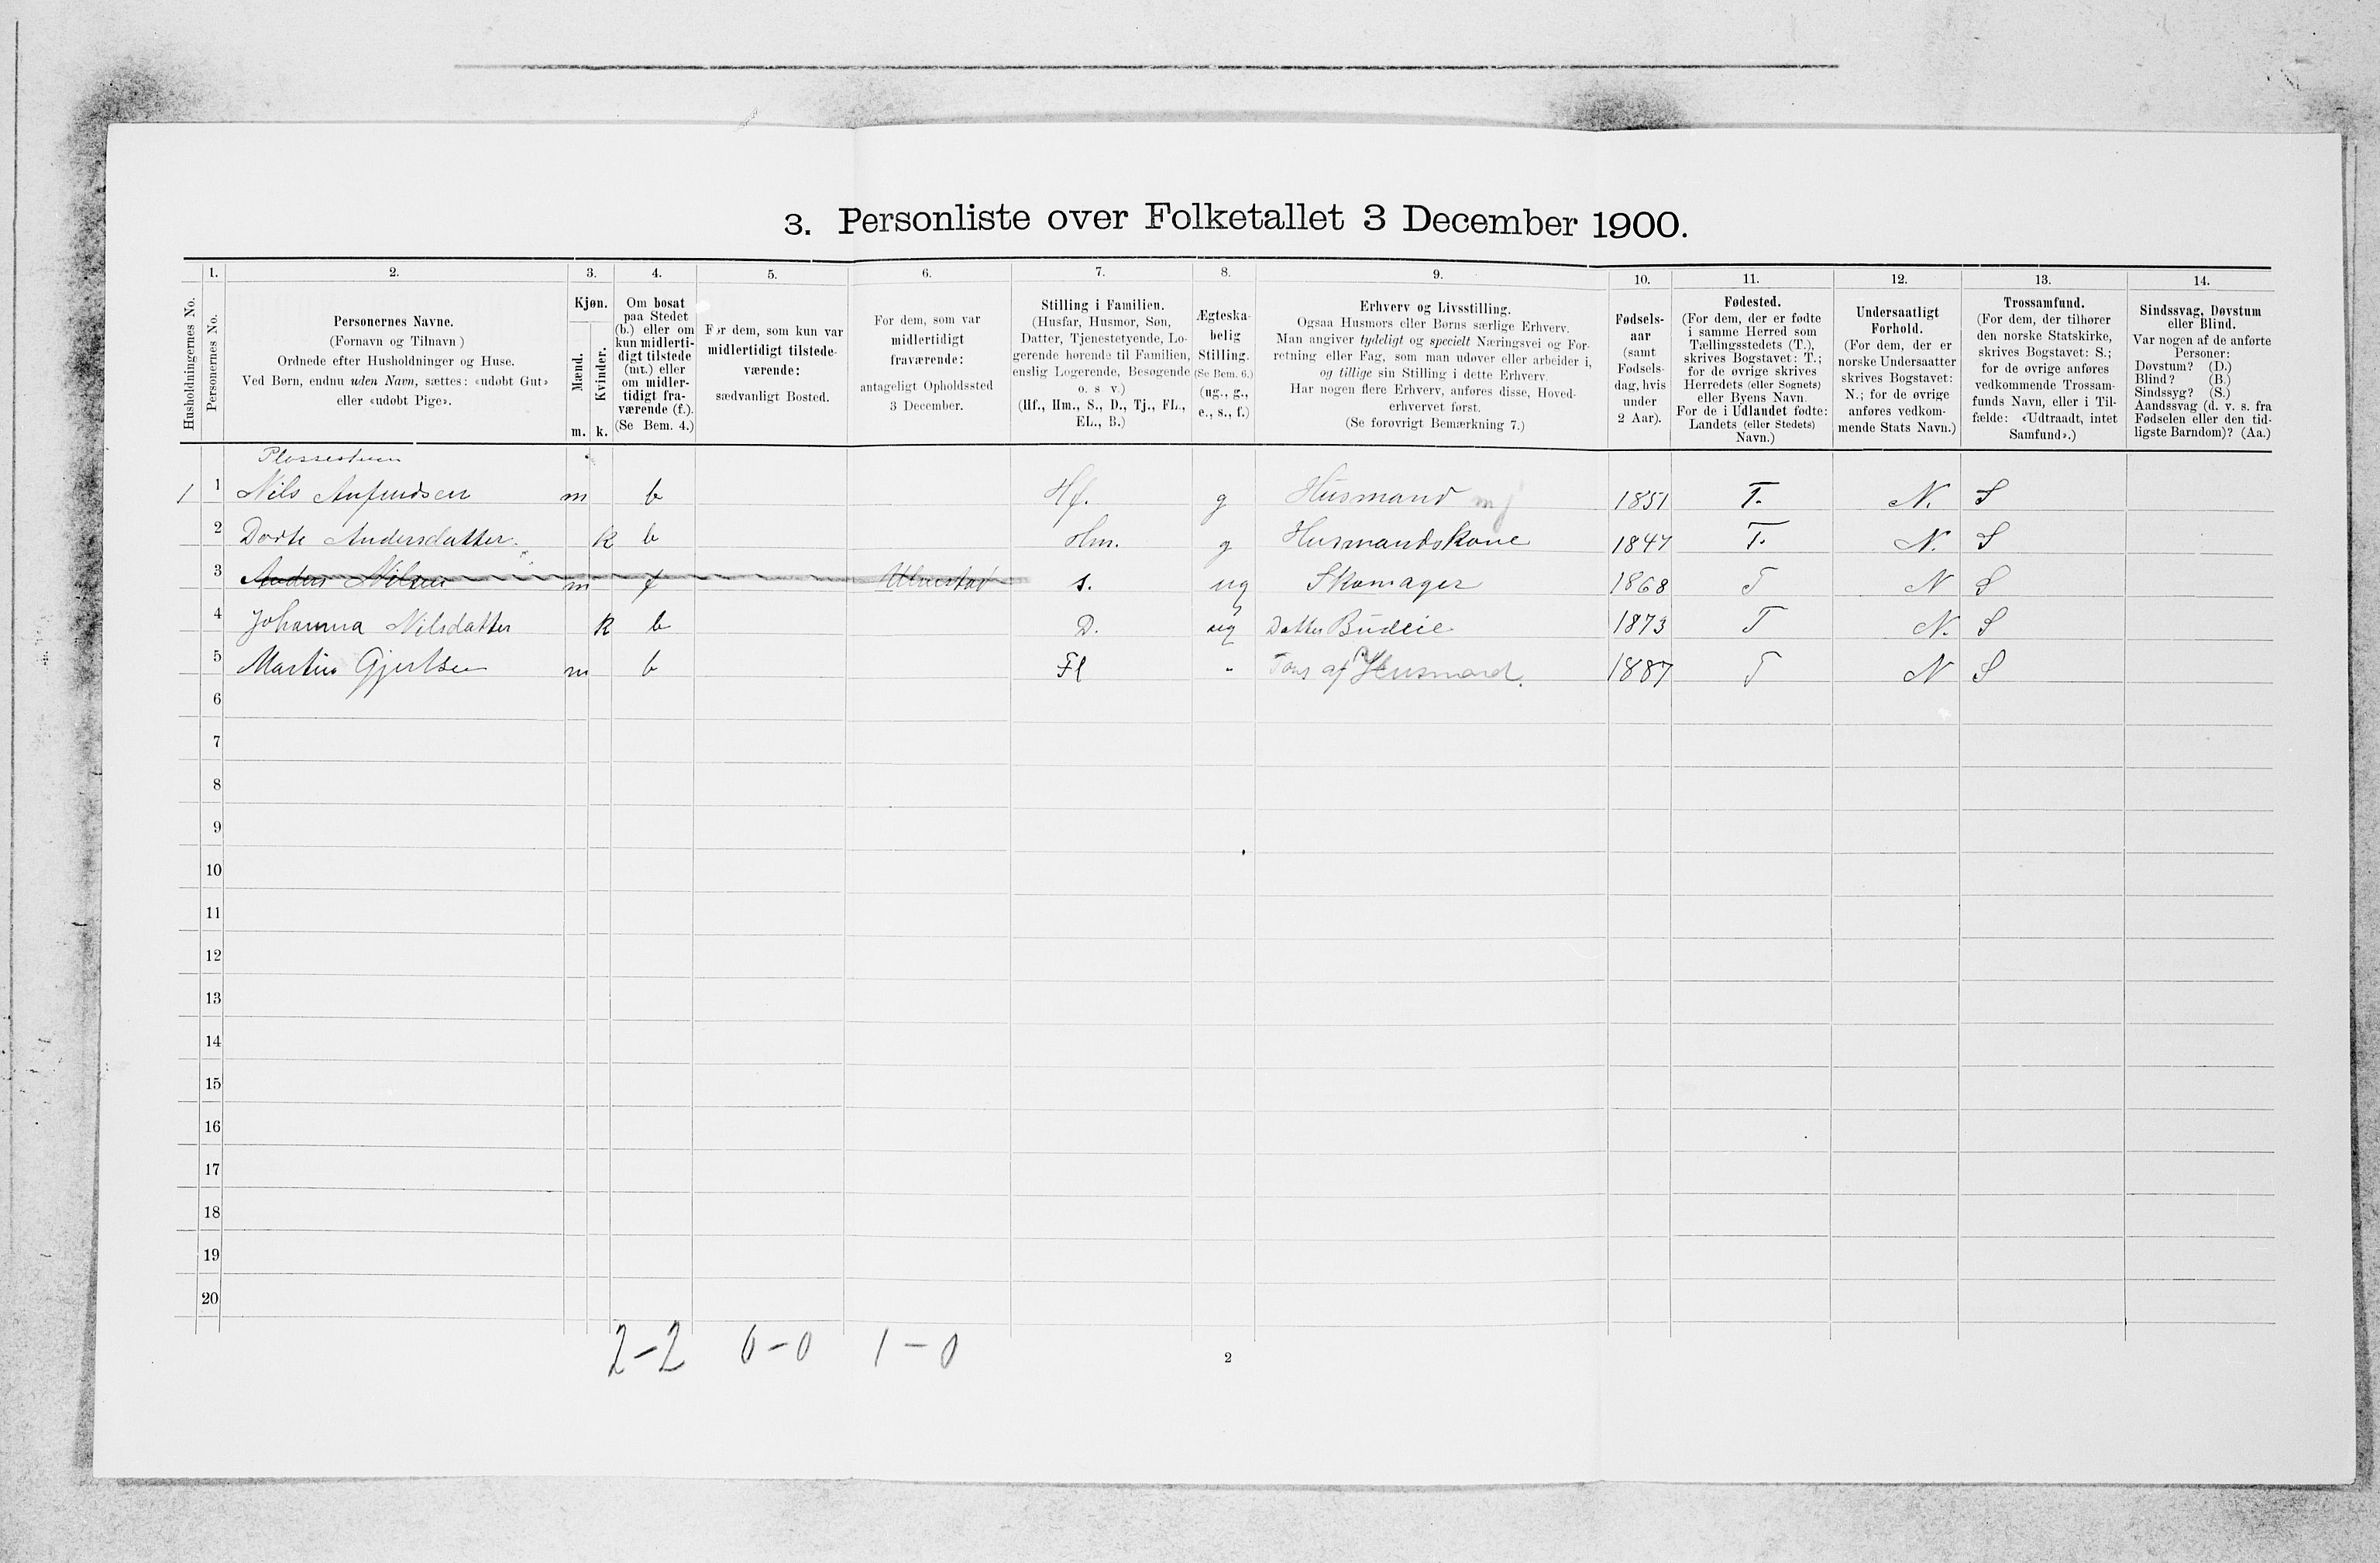 3. Personliste over Folketallet 3 December 1900.
Husholdningernes No.
1. Personernes No.
2. Personernes Navne.
(Fornavn og Tilnavn.)
Ordnede efter Husholdninger og Huse.
Ved Børn, endnu uden Navn, sættes: «udøbt Gut»
eller «udøbt Pige».
3. Kjøn.
Mænd. m.
Kvinder. k.
4. Om bosat
paa Stedet
(b.) eller om
kun midlerti-
digt tilstede
(mt.) eller
om midler-
tidigt fra-
værende (f.).
(Se Bem. 4.)
5. For dem, som kun var
midlertidigt tilstede-
værende:
sædvanligt Bosted.
6. For dem, som var
midlertidigt
fraværende:
antageligt Opholdssted
3 December.
7. Stilling i Familien.
(Husfar, Husmor, Søn,
Datter, Tjenestetyende, Lo-
gerende hørende til Familien,
enslig Logerende, Besøgende
o. s. v.)
(Hf., Hm., S., D., Tj., FL.,
EL., B.)
8. Ægteska-
belig
Stilling.
(Se Bem. 6.)
(ug., g.,
e., s., f.)
9. Erhverv og Livsstilling.
Ogsaa Husmors eller Børns særlige Erhverv.
Man angiver tydeligt og specielt Næringsvei og For-
retning eller Fag, som man udøver eller arbeider i,
og tillige sin Stilling i dette Erhverv.
Har nogen flere Erhverv, anføres disse, Hoved-
erhvervet først.
(Se forøvrigt Bemærkning 7.)
10. Fødsels-
aar
(samt
Fødsels-
dag, hvis
under
2 Aar).
11. Fødested.
(For dem, der er fødte
i samme Herred som
Tællingsstedets (T.),
skrives Bogstavet: T.;
for de øvrige skrives
Herredets (eller Sognets)
eller Byens Navn.
For de i Udlandet fødte:
Landets (eller Stedets)
Navn.)
12. Undersaatligt
Forhold.
(For dem, der er
norske Undersaatter
skrives Bogstavet:
N.; for de øvrige
anføres vedkom-
mende Stats Navn.)
13. Trossamfund.
(For dem, der tilhører
den norske Statskirke,
skrives Bogstavet: S.;
for de øvrige anføres
vedkommende Trossam-
funds Navn, eller i Til-
fælde: «Udtraadt, intet
Samfund».)
14. Sindssvag, Døvstum
eller Blind.
Var nogen af de anførte
Personer:
Døvstum? (D.)
Blind? (B.)
Sindssyg? (S.)
Aandssvag (d. v. s. fra
Fødselen eller den tid-
ligste Barndom)? (Aa.)
1 1 Nils Anfindsen m b Hf. g Husmand mj 1851 T. N. S
2 Dorte Andersdatter. k b Hm. g Husmandskone 1847 T. N. S
3 Anders Nilsen m f s. ug Skomager 1868 T N S
4 Johanna Nilsdatter k b D. ug Datter Budeie 1873 T N. S
5 Martin Gjertsen m b Fl " af Husmand. 1887 T N S
6
7
8
9
10
11
12
13
14
15
16
17
18
19
20
2-2 0-0 1-0
2